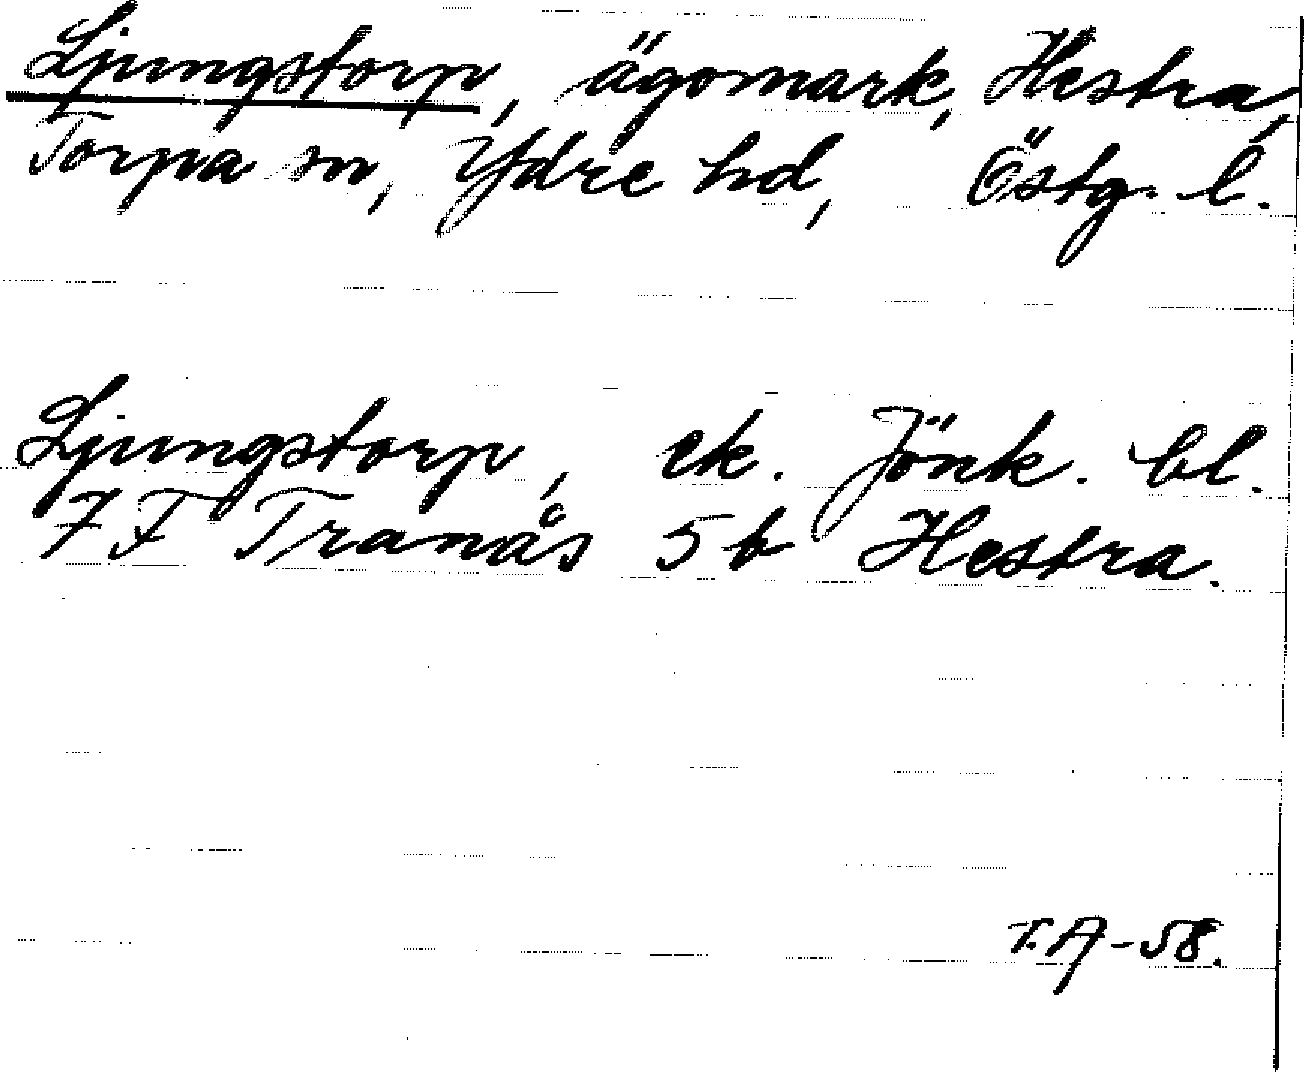 Ljungstorp, ägomark, Hestra,
Torpa sn, Ydre hd, Östg. l.
Ljungstorp, ek. Jönk. bl.
7 F Tranås 5 b Hestra.
T.A-58.